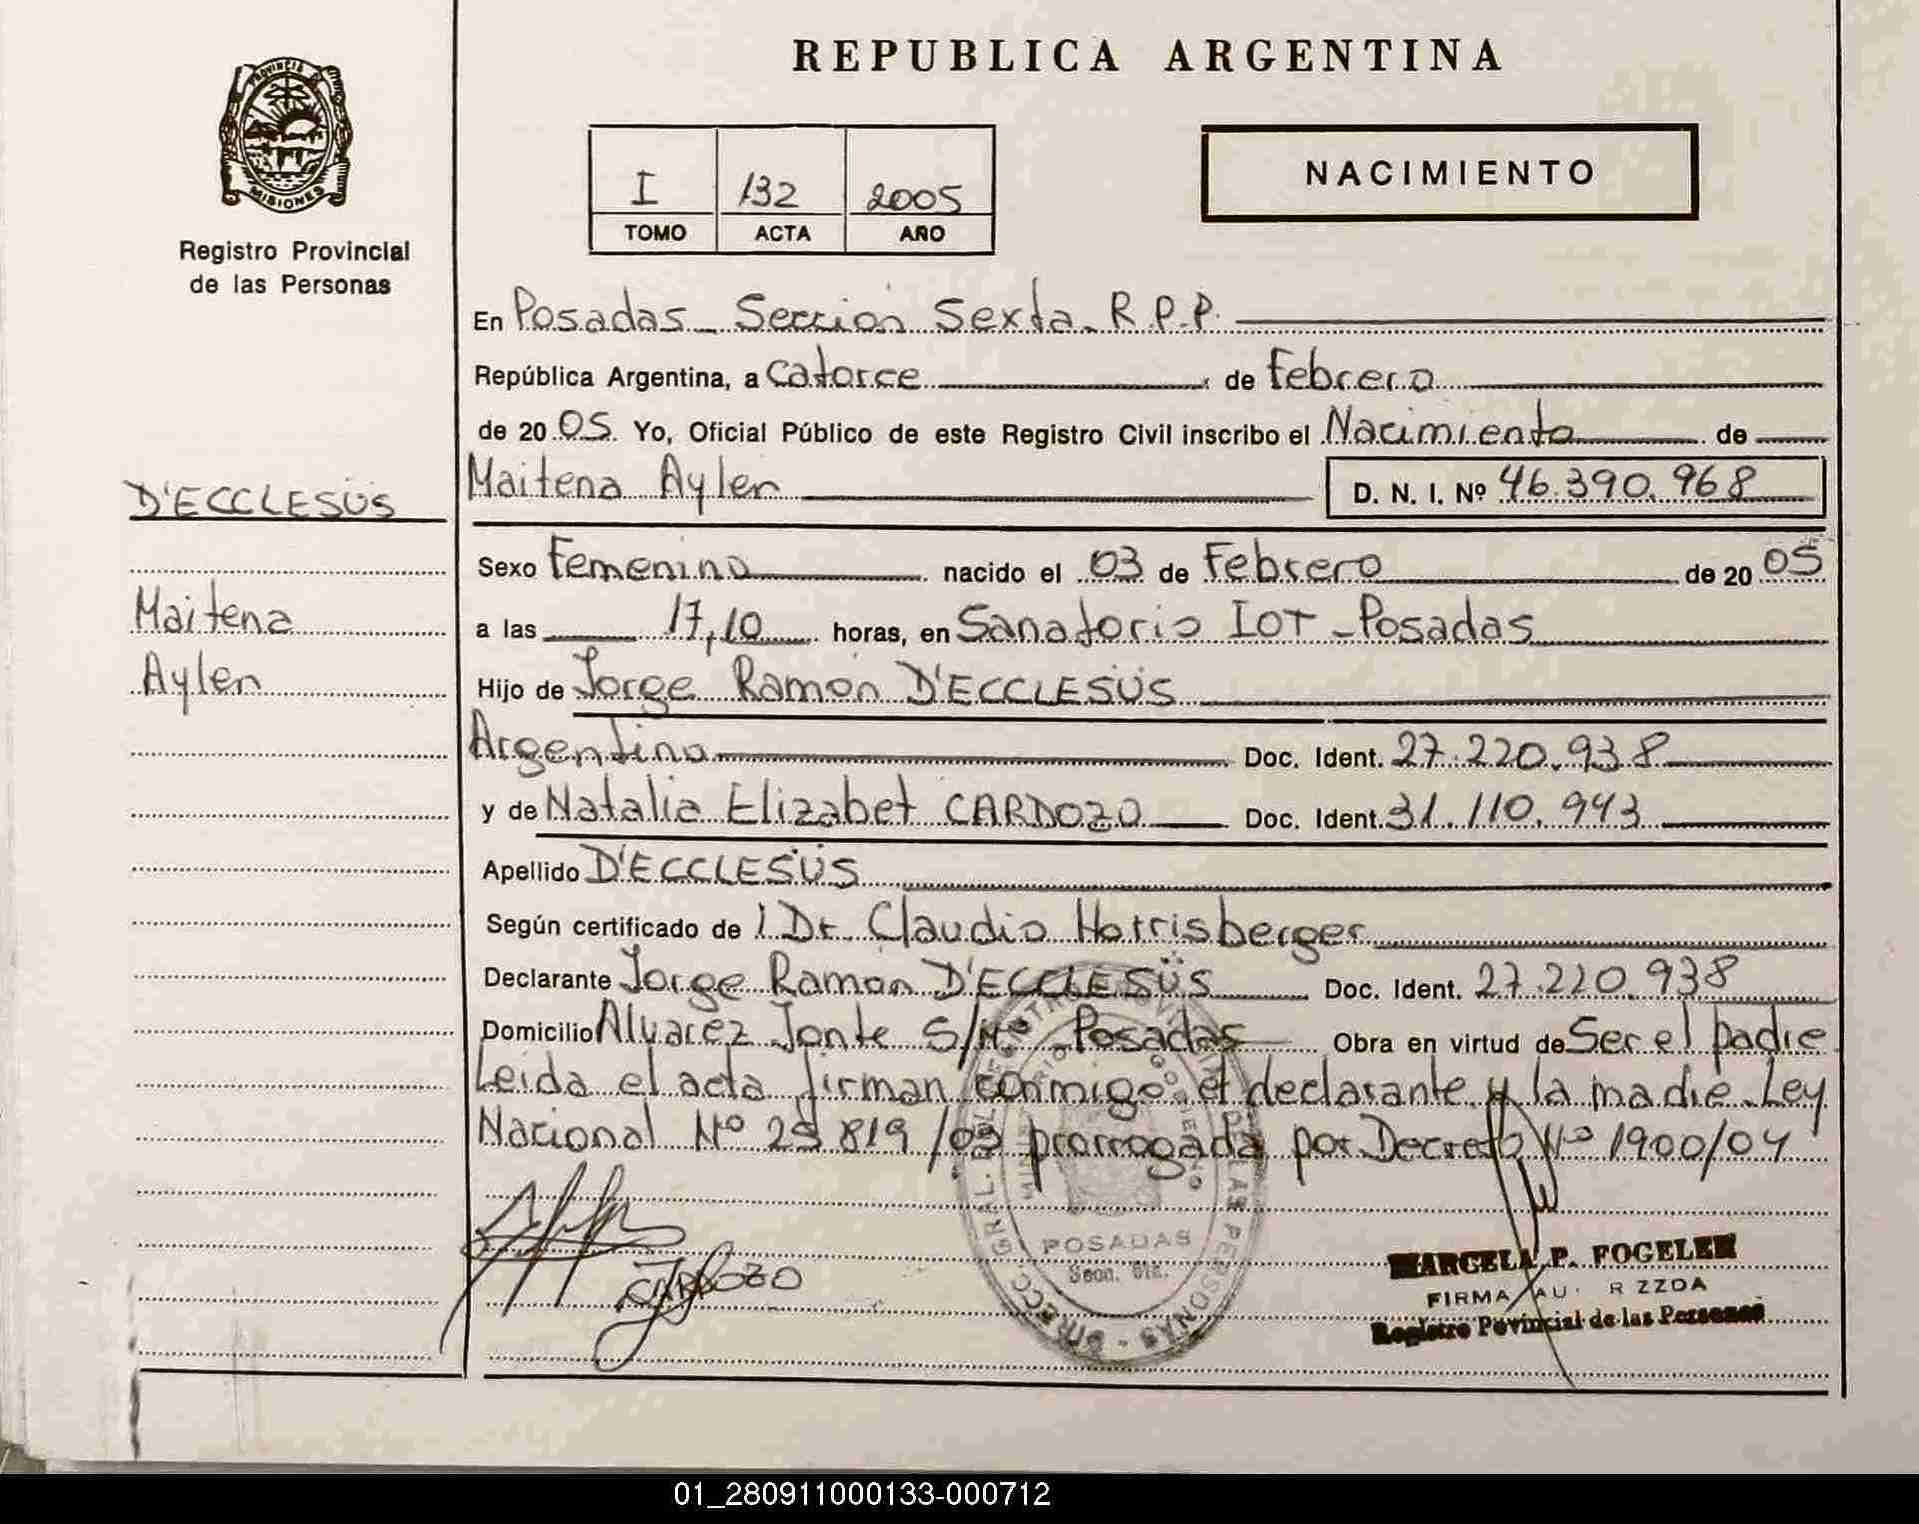 REPUBLICA ARGENTINA
PROVINCIA DE
MISIONES
Registro Provincial
de las Personas
I 132 2005
TOMO ACTA AÑO
NACIMIENTO
En Posadas - Sección Sexta - R.P.P.
República Argentina, a catorce de Febrero
de 2005. Yo, Oficial Público de este Registro Civil inscribo el Nacimiento de
Maitena Aylen D. N. I. Nº 46.390.968
D'ECCLESÜS
Maitena
Aylen
Sexo Femenino nacido el 03 de Febrero de 2005
a las 17,10 horas, en Sanatorio IOT - Posadas
Hijo de Jorge Ramón D'ECCLESÜS
Argentino Doc. Ident. 27.220.938
y de Natalia Elizabet CARDOZO Doc. Ident. 31.110.943
Apellido D'ECCLESÜS
Según certificado de l Dr. Claudio Horrisberger
Declarante Jorge Ramón D'ECCLESÜS Doc. Ident. 27.220.938
Domicilio Alvarez Jonte S/Nº - Posadas Obra en virtud de Ser el padre
Leida el acta firman conmigo el declarante y la madre - Ley
Nacional Nº 25.819/03 prorrogada por Decreto Nº 1900/04
CARDOZO
POSADAS
Secc. 6ta.
MARCELA P. FOGELER
FIRMA AU R ZZDA
Registro Povincial de las Personas
01_280911000133-000712